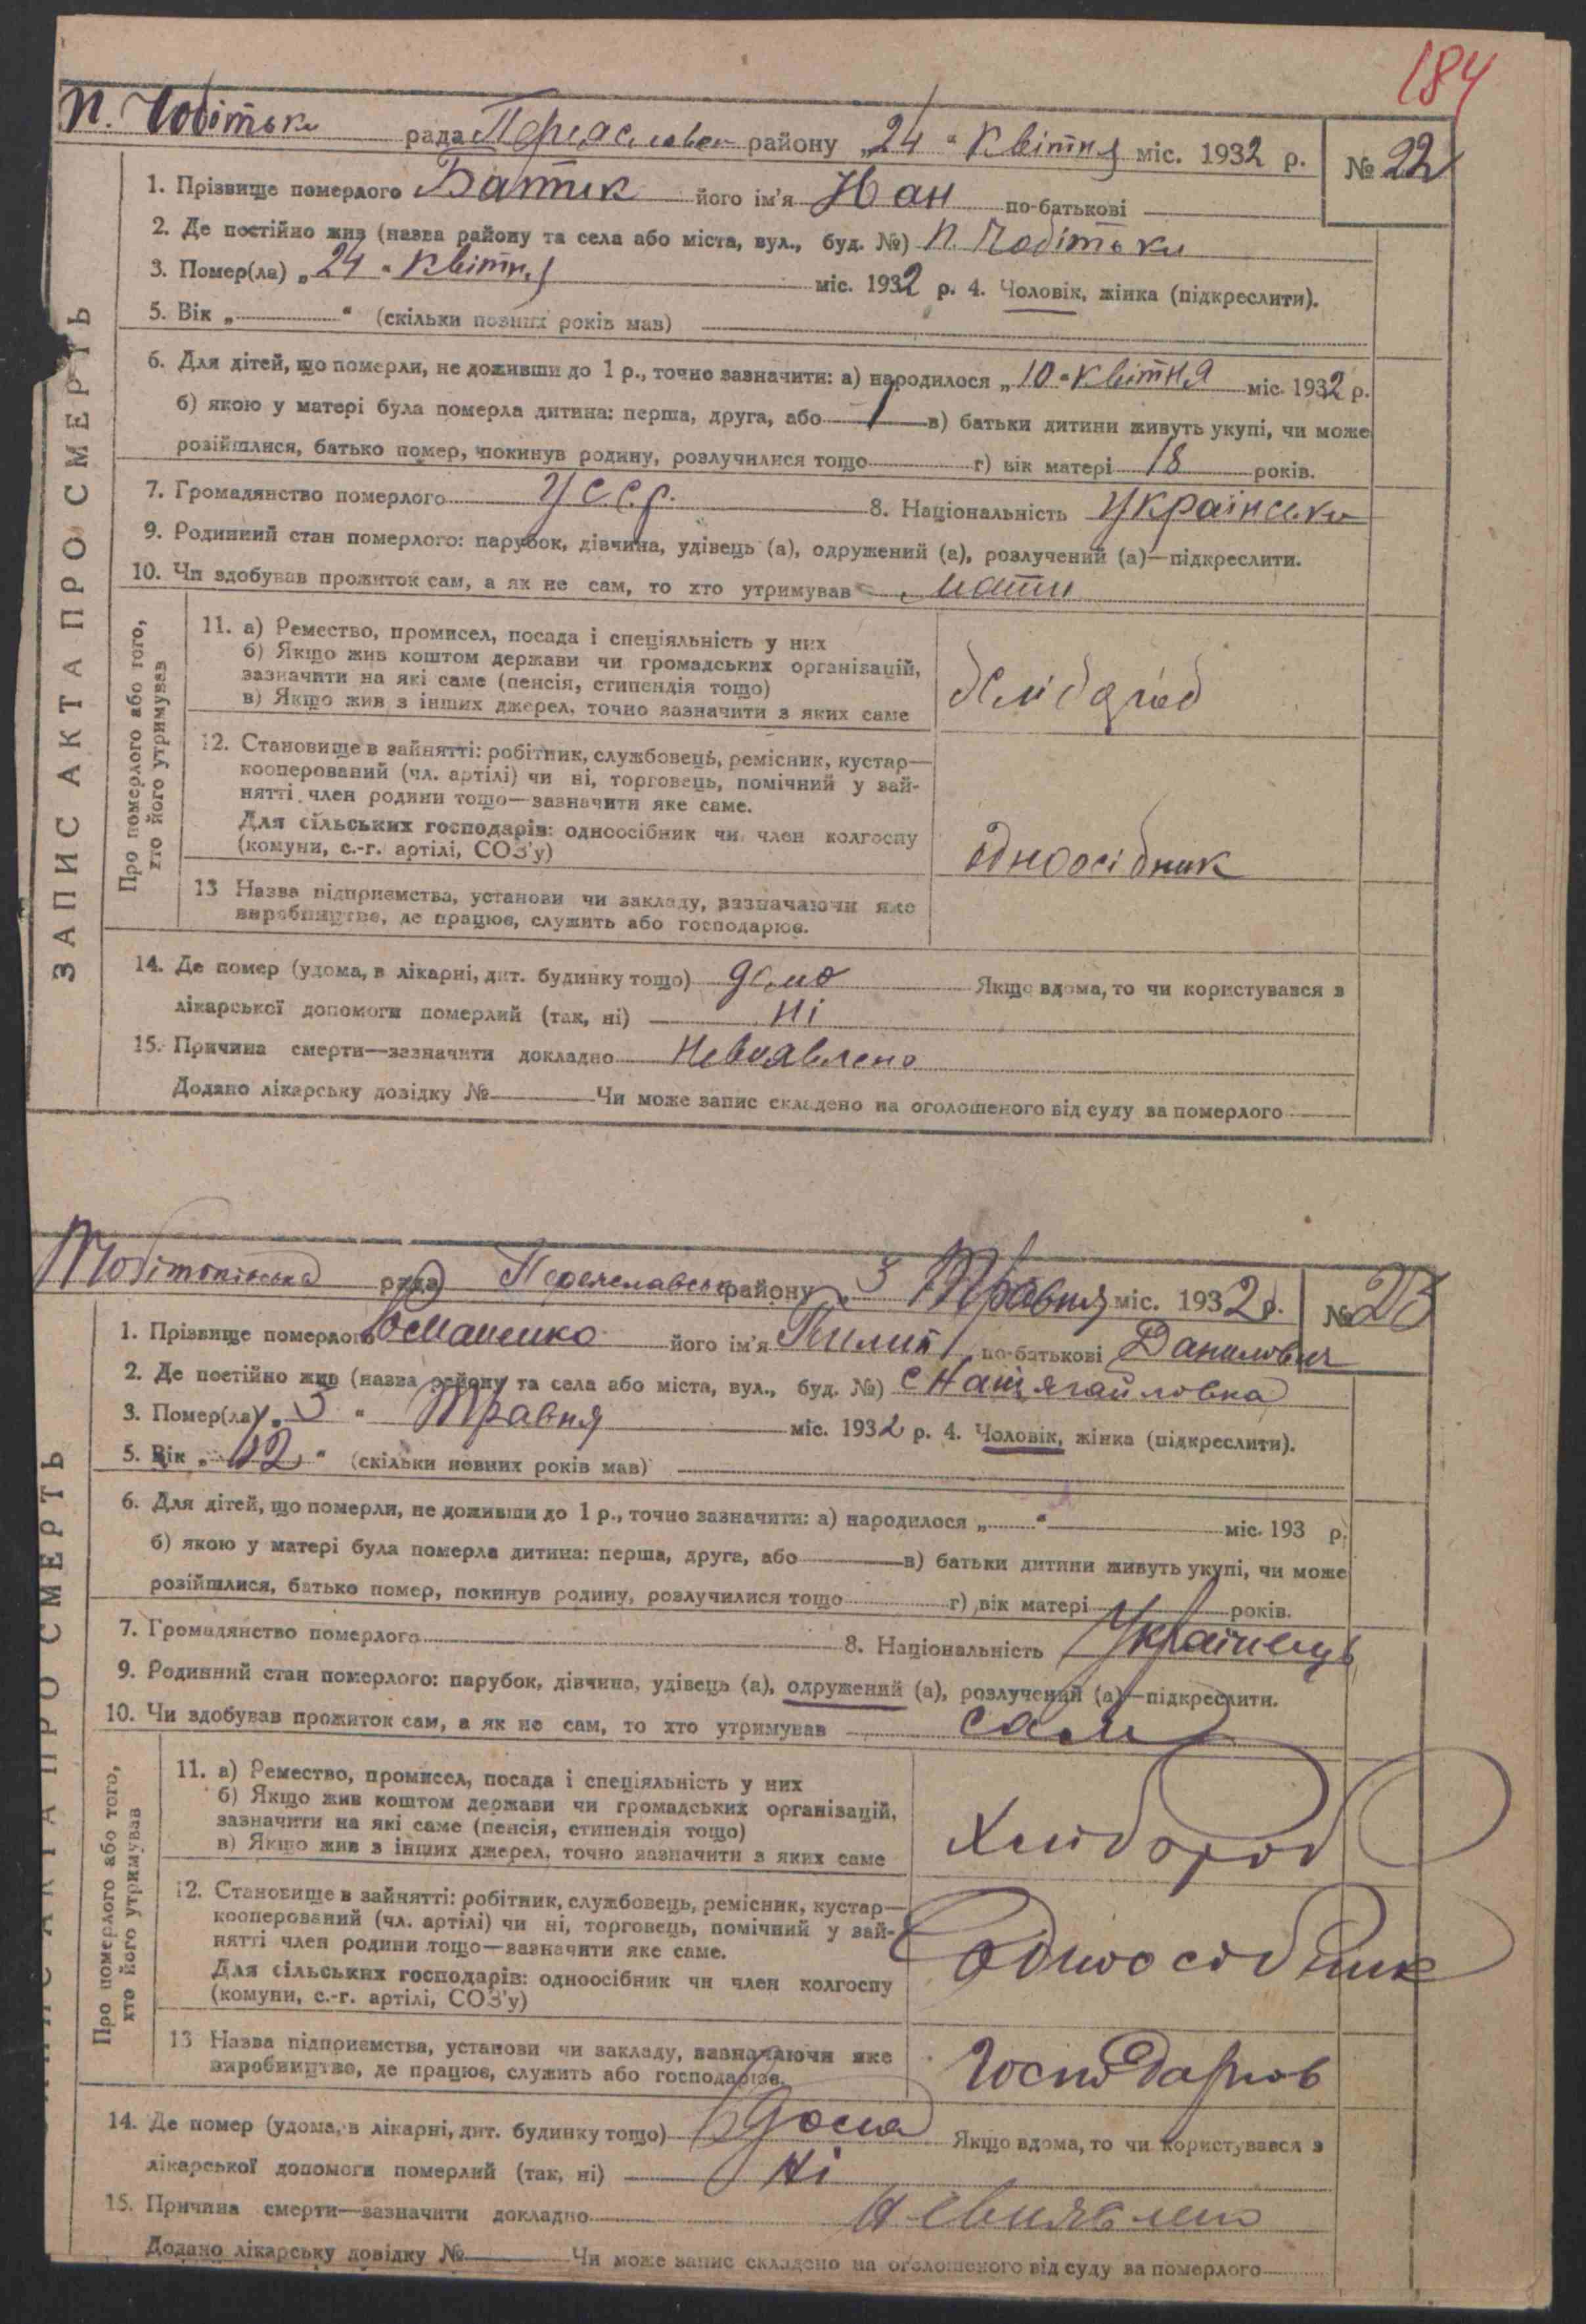 184
п. Чобітьки рада Переяславськ району „24 “ Квітня міс. 1932 р. № 22
ЗАПИС АКТА ПРО СМЕРТЬ
1. Прізвище померлого Батик його ім'я Іван по-батькові
2. Де постійно жив (назва району та села або міста, вул., буд. №) п. Чобітьки
3. Помер(ла) „ 24 “ Квітня міс. 1932 р. 4. Чоловік, жінка (підкреслити).
5. Вік „ “ (скільки повних років мав)
6. Для дітей, що померли, не доживши до 1 р., точно зазначити: а) народилося „ 10 “ Квітня міс. 1932 р.
б) якою у матері була померла дитина: перша, друга, або 1 в) батьки дитини живуть укупі, чи може
розійшлися, батько помер, покинув родину, розлучилися тощо г) вік матері 18 років.
7. Громадянство померлого УССР. 8. Національність Українська
9. Родинний стан померлого: парубок, дівчина, удівець (а), одружений (а), розлучений (а)—підкреслити.
10. Чи здобував прожиток сам, а як не сам, то хто утримував мати
Про померлого або того,
хто його утримував
11. а) Ремество, промисел, посада і спеціяльність у них
б) Якщо жив коштом держави чи громадських організацій,
зазначити на які саме (пенсія, стипендія тощо)
в) Якщо жив з інших джерел, точно зазначити з яких саме
хлібороб
12. Становище в зайнятті: робітник, службовець, ремісник, кустар—
кооперований (чл. артілі) чи ні, торговець, помічний у зай-
нятті член родини тощо—зазначити яке саме.
Для сільських господарів: одноосібник чи член колгоспу
(комуни, с.-г. артілі, СОЗ'у)
одноосібник
13 Назва підприємства, установи чи закладу, зазначаючи яке
виробництво, де працює, служить або господарює.
14. Де помер (удома, в лікарні, дит. будинку тощо) дома Якщо вдома, то чи користувався з
лікарської допомоги померлий (так, ні) Ні
15. Причина смерти—зазначити докладно Невиявлено
Додано лікарську довідку № Чи може запис складено на оголошеного від суду за померлого
рада Переяславськ району „ 3 Травня міс. 1932 р. № 23
ЗАПИС АКТА ПРО СМЕРТЬ
1. Прізвище померлого його ім'я Пилип по-батькові Данилович
2. Де постійно жив (назва району та села або міста, вул., буд. №)
3. Помер(ла) „ 3 “ Травня міс. 1932 р. 4. Чоловік, жінка (підкреслити).
5. Вік „ “ (скільки повних років мав)
6. Для дітей, що померли, не доживши до 1 р., точно зазначити: а) народилося „ “ міс. 193 р.
б) якою у матері була померла дитина: перша, друга, або в) батьки дитини живуть укупі, чи може
розійшлися, батько помер, покинув родину, розлучилися тощо г) вік матері років.
7. Громадянство померлого 8. Національність Українець
9. Родинний стан померлого: парубок, дівчина, удівець (а), одружений (а), розлучений (а)—підкреслити.
10. Чи здобував прожиток сам, а як не сам, то хто утримував сам
Про померлого або того,
хто його утримував
11. а) Ремество, промисел, посада і спеціяльність у них
б) Якщо жив коштом держави чи громадських організацій,
зазначити на які саме (пенсія, стипендія тощо)
в) Якщо жив з інших джерел, точно зазначити з яких саме
Хлібороб
12. Становище в зайнятті: робітник, службовець, ремісник, кустар—
кооперований (чл. артілі) чи ні, торговець, помічний у зай-
нятті член родини тощо—зазначити яке саме.
Для сільських господарів: одноосібник чи член колгоспу
(комуни, с.-г. артілі, СОЗ'у)
Одноосібник
13 Назва підприємства, установи чи закладу, зазначаючи яке
виробництво, де працює, служить або господарює.
14. Де помер (удома, в лікарні, дит. будинку тощо) Вдома Якщо вдома, то чи користувався з
лікарської допомоги померлий (так, ні) Ні
15. Причина смерти—зазначити докладно Невиявлено
Додано лікарську довідку № Чи може запис складено на оголошеного від суду за померлого